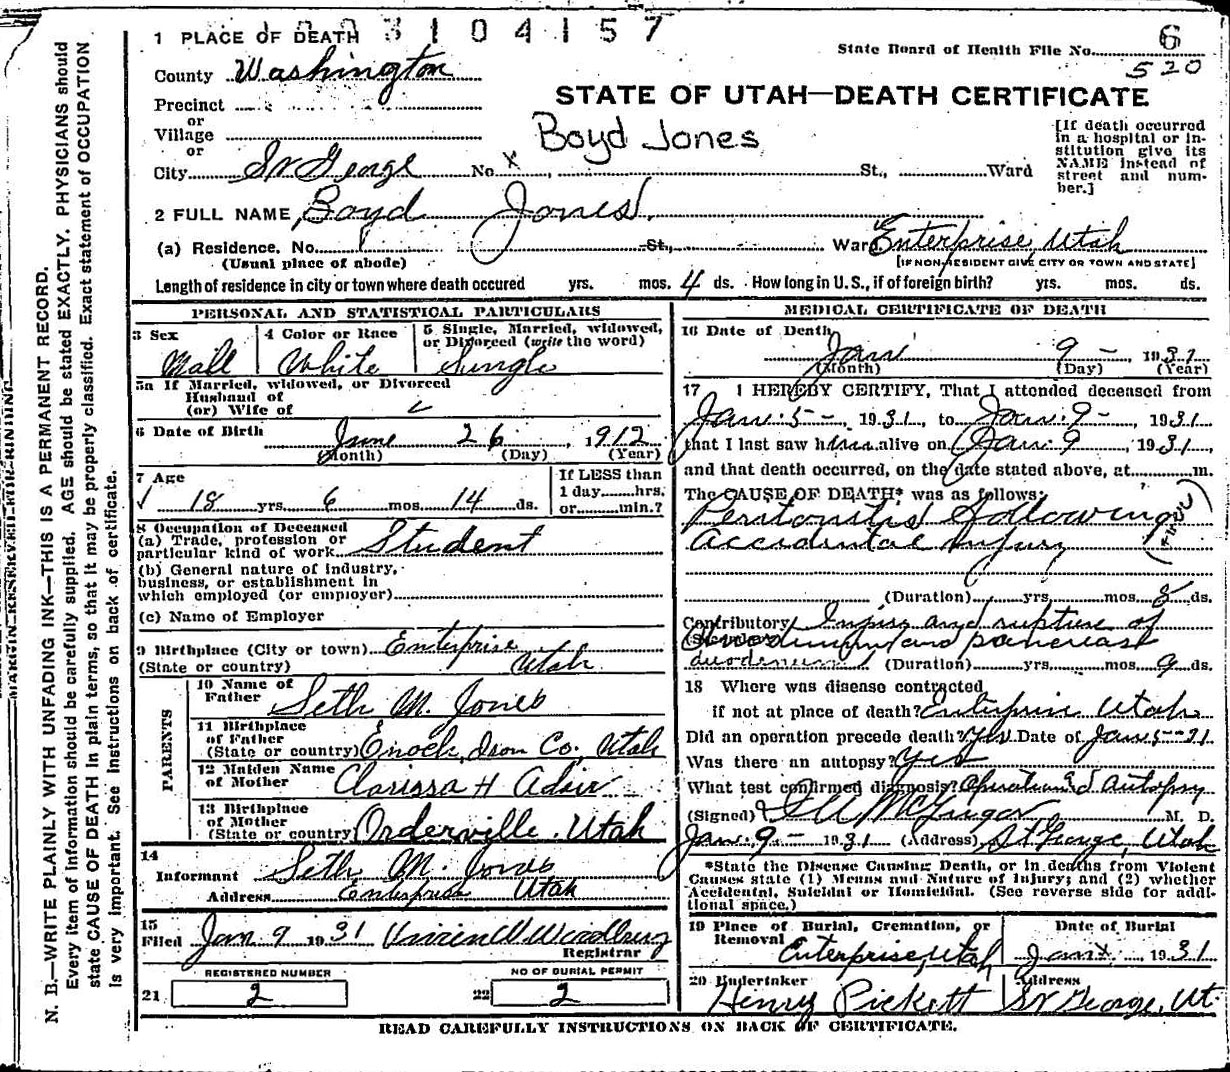 1 PLACE OF DEATH 3104157
State Board of Health File No. 6
520
County Washington
Precinct
or
Village
or
City St George No. x St., Ward
STATE OF UTAH—DEATH CERTIFICATE
Boyd Jones
[If death occurred
in a hospital or in-
stitution give its
NAME instead of
street and num-
ber.]
2 FULL NAME Boyd Jones
(a) Residence. No. St., Ward Enterprise Utah
(Usual place of abode) [IF NON-RESIDENT GIVE CITY OR TOWN AND STATE]
Length of residence in city or town where death occured yrs. mos. 4 ds. How long in U.S., if of foreign birth? yrs. mos. ds.
PERSONAL AND STATISTICAL PARTICULARS
3 Sex 4 Color or Race 5 Single, Married, widowed,
or Divorced (write the word)
Male White Single
5a If Married, widowed, or Divorced
Husband of
(or) Wife of
6 Date of Birth June 26, 1912
(Month) (Day) (Year)
7 Age If LESS than
1 day hrs.
or min.?
18 yrs. 6 mos. 14 ds.
8 Occupation of Deceased
(a) Trade, profession or
particular kind of work Student
(b) General nature of industry,
business, or establishment in
which employed (or employer)
(c) Name of Employer
9 Birthplace (City or town) Enterprise
(State or country) Utah
PARENTS
10 Name of
Father Seth M. Jones
11 Birthplace
of Father
(State or country) Enoch, Iron Co. Utah
12 Maiden Name
of Mother Clarissa H Adair
13 Birthplace
of Mother
(State or country) Orderville, Utah
14
Informant Seth M. Jones
Address Enterprise Utah
15
Filed Jan 9 1931
Registrar
REGISTERED NUMBER NO OF BURIAL PERMIT
21 2 22 2
MEDICAL CERTIFICATE OF DEATH
16 Date of Death
Jan 9 - 1931
(Month) (Day) (Year)
17 I HEREBY CERTIFY, That I attended deceased from
Jan. 5 -, 1931 to Jan. 9 - 1931
that I last saw him alive on Jan. 9, 1931,
and that death occurred, on the date stated above, at m.
The CAUSE OF DEATH* was as follows:
Peritonitis following
accidental injury
(Duration) yrs. mos. ds.
Contributory Injury and rupture of
(Secondary) duodenum and pancreas
duodenum (Duration) yrs. mos. 9 ds.
18 Where was disease contracted
if not at place of death? Enterprise Utah
Did an operation precede death? Yes Date of Jan 5-31
Was there an autopsy? Yes
What test confirmed diagnosis? Operation and Autopsy
(Signed) McGregor M. D.
Jan. 9 - 1931 (Address) St George, Utah
*State the Disease Causing Death, or in deaths from Violent
Causes state (1) Means and Nature of Injury; and (2) whether
Accidental, Suicidal or Homicidal. (See reverse side for addi-
tional space.)
19 Place of Burial, Cremation, or
Removal Date of Burial
Enterprise, Utah Jan 1931
20 Undertaker Address
Henry Pickett St George, Ut.
READ CAREFULLY INSTRUCTIONS ON BACK OF CERTIFICATE.
MARGIN RESERVED FOR BINDING
N. B.—WRITE PLAINLY WITH UNFADING INK—THIS IS A PERMANENT RECORD.
Every item of information should be carefully supplied. AGE should be stated EXACTLY. PHYSICIANS should
state CAUSE OF DEATH in plain terms, so that it may be properly classified. Exact statement of OCCUPATION
is very important. See instructions on back of certificate.